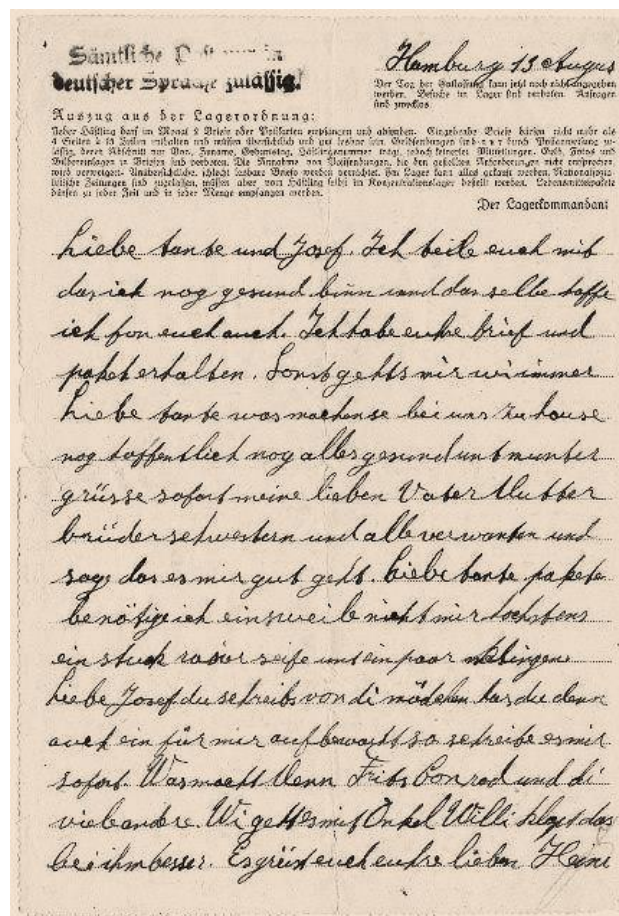 Sämtliche Post nur in
deutscher Sprache zulässig!
Hamburg 13 Augus
Der Tag der Entlassung kann jetzt noch nicht angegeben
werden. Besuche im Lager sind verboten. Anfragen
sind zwecklos.
Auszug aus der Lagerordnung:
Jeder Häftling darf im Monat 2 Briefe oder Postkarten empfangen und absenden. Eingehende Briefe dürfen nicht mehr als
4 Seiten à 15 Zeilen enthalten und müssen übersichtlich und gut lesbar sein. Geldsendungen sind nur durch Postanweisung zu-
lässig, deren Abschnitt nur Vor-, Zuname, Geburtstag, Häftlingsnummer trägt, jedoch keinerlei Mitteilungen. Geld, Fotos und
Bildereinlagen in Briefen sind verboten. Die Annahme von Postsendungen, die den gestellten Anforderungen nicht entsprechen,
wird verweigert. Unübersichtliche, schlecht lesbare Briefe werden vernichtet. Im Lager kann alles gekauft werden. Nationalsozia-
listische Zeitungen sind zugelassen, müssen aber vom Häftling selbst im Konzentrationslager bestellt werden. Lebensmittelpakete
dürfen zu jeder Zeit und in jeder Menge empfangen werden.
Der Lagerkommandant
Liebe tante und Josef. Ich teile euch mit
das ich nog gesund binn und das selbe hoffe
ich fon euch auch. Ich habe euhre brief und
paket erhalten. Sonst gehts mir wi immer
Liebe tante was machen se bei uns zu hause
nog hoffentlich nog alles gesund unt munter
grüsse sofort meine lieben Vater Mutter
brüder schwestern und alle verwanten und
sage das es mir gut geht. Liebe tante pakete
benötige ich einsweile nicht mir hochstens
ein stuck rasier seife unt ein paar klingen
Liebe Josef du schreibs von di mädchen has du denn
auch ein für mir aufbewart so schreibe es mir
sofort. Was macht denn Frits Conrad und di
viele andere. Wi geht es mit Onkel Willi das
bei ihm besser. Es grüst euch euhre lieben Heini